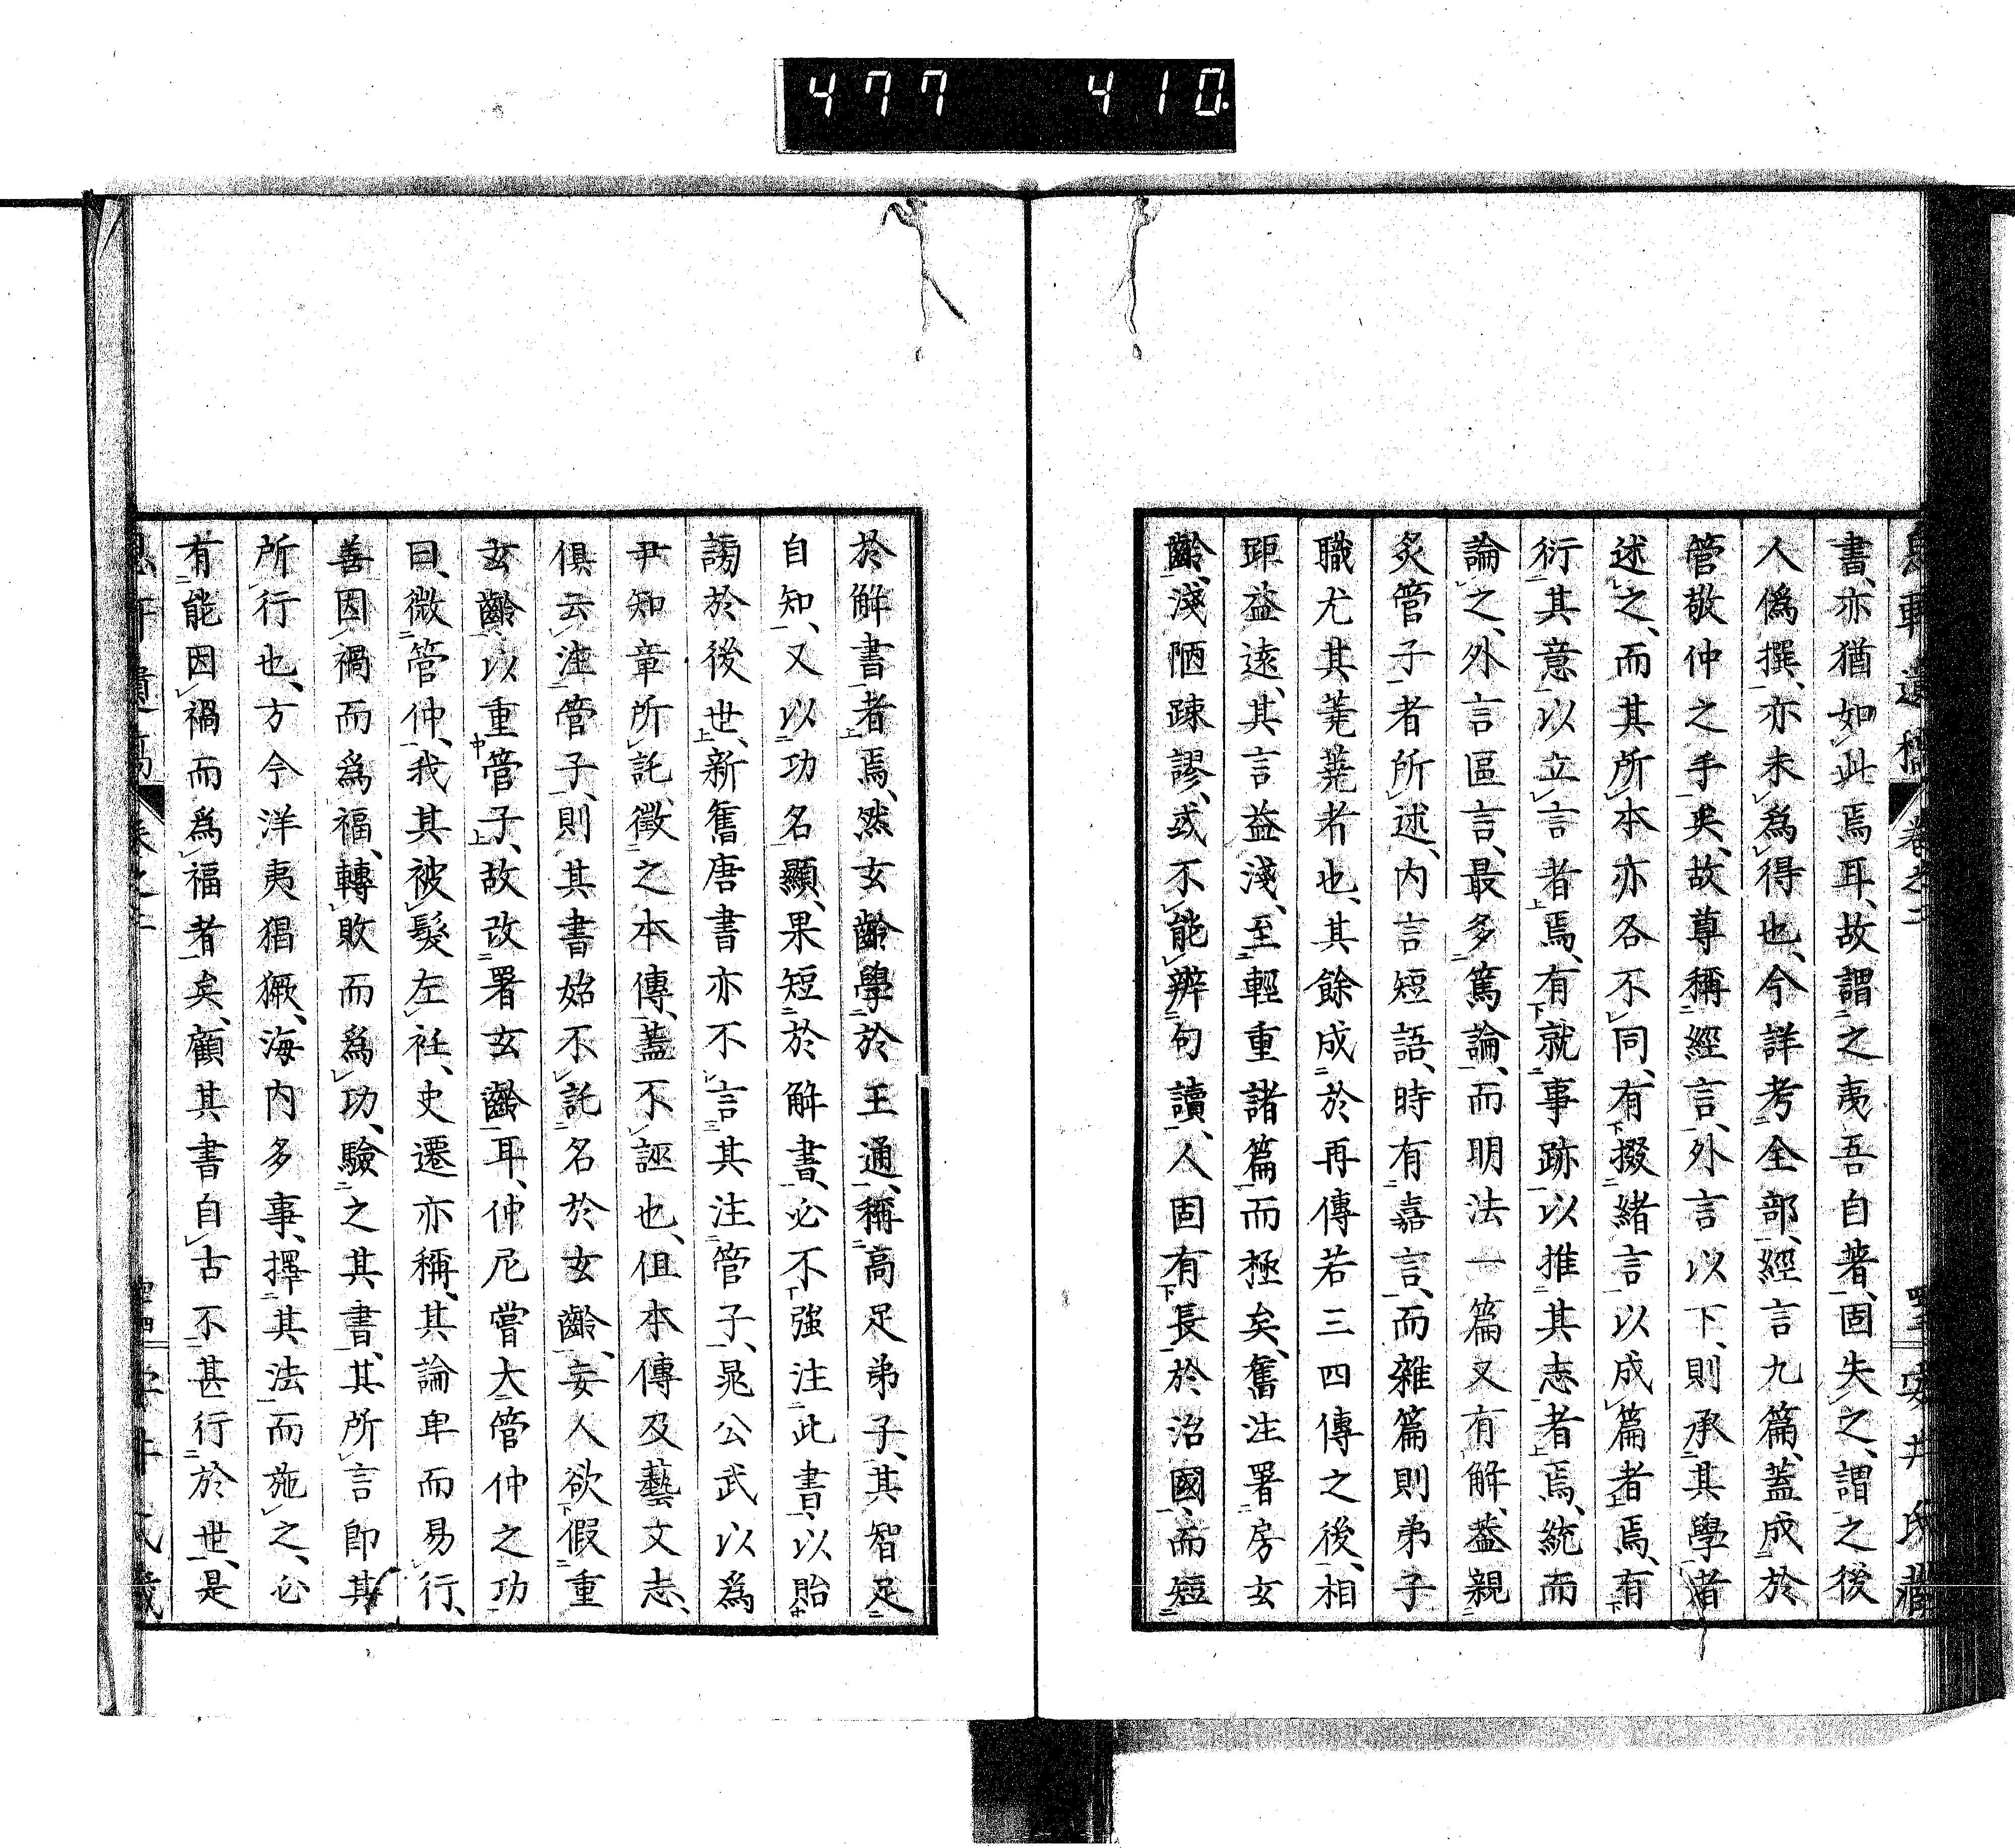 477 410
書、亦猶如此焉耳、故謂之夷吾自著、固失之、謂之後
人僞撰、亦未爲得也、今詳考全部、經言九篇、蓋成於
管敬仲之手矣、故尊稱經言、外言以下、則承其學者
述之、而其所本亦各不同、有掇緒言以成篇者焉、有
衍其意以立言者焉、有就事跡以推其志者焉、統而
論之、外言區言、最多篤論、而明法一篇又有解、蓋親
炙管子者所述、内言短語、時有嘉言、而雜篇則弟子
職尤其蕘蕘者也、其餘成於再傳若三四傳之後、相
距益遠、其言益淺、至輕重諸篇而極矣、舊注署房玄
齡、淺陋踈謬、或不能辨句讀、人固有長於治國、而短
於解書者焉、然玄齡學於王通、稱高足弟子、其智足
自知、又以功名顯、果短於解書、必不強注此書、以貽
謗於後世、新舊唐書亦不言其注管子、晁公武以爲
尹知章所託、徵之本傳、蓋不誣也、但本傳及藝文志、
俱云注管子、則其書始不託名於玄齡、妄人欲假重
玄齡以重管子、故改署玄齡耳、仲尼嘗大管仲之功
曰、微管仲、我其被髮左衽、史遷亦稱、其論卑而易行、
善因禍而爲福、轉敗而爲功、驗之其書、其所言即其
所行也、方今洋夷猖獗、海内多事、擇其法而施之、必
有能因禍而爲福者矣、顧其書自古不甚行於世、是